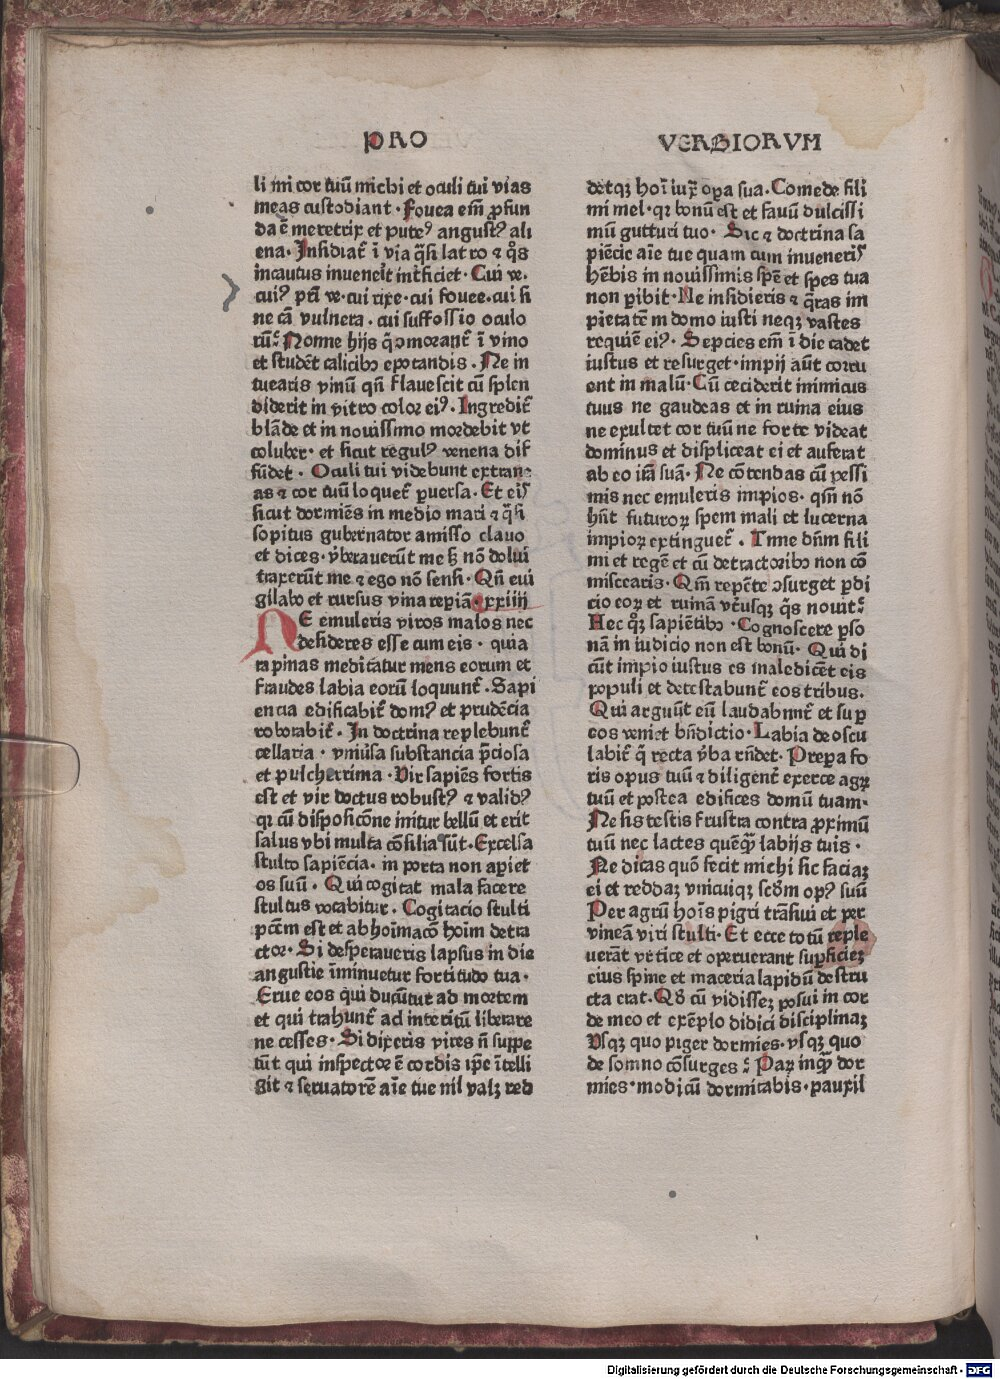 PRO
VERBIORVM
li mi cor tuū michi et oculi tui vias
meas custodiant · Fouea em̄ ꝓfun
da ē meretrix et puteꝰ angustꝰ ali
ena · Insidiat᷑ ī via q̄si latro ⁊ q̊s
incautus inuenēit int̄ficiet · Cui ve ·
cuiꝰ pr̄i ve · cui rixe · cui fouee · cui si
ne cā vulnera · cui suffossio oculo
rū: Nonne hijs q̇ morant᷑ ī vino
et studēt calicibꝫ epotandis · Ne in
tuearis vinū qn̄ flauescit cū splen
diderit in vitro color eiꝰ · Ingredit᷑
blāde et in nouissimo mordebit vt
coluber · et sicut regulꝰ venena dif
fūdet · Oculi tui videbunt extran-
as ⁊ cor tuū loquet᷑ ꝑuersa · Et eis
sicut dormiēs in medio mari ⁊ q̄si
sopitus gubernator amisso clauo
et dices · v̄berauerūt me sꝫ nō dolui
traxerūt me ⁊ ego nō sensi · Qn̄ eui
gilabo et rursus vina reꝑiā · xxiiij
NE emuleris viros malos nec
desideres esse cum eis · quia
rapinas meditātur mens eorum et
fraudes labia eorū loquunt᷑ · Sapi
encia edificabit᷑ domꝰ et prudēcia
roborabit᷑ · In doctrina replebunt᷑
cellaria · vniūsa substancia p̄ciosa
et pulcherrima · Vir sapiēs fortis
est et vir doctus robustꝰ ⁊ validꝰ
qꝛ cū disposicōne initur bellū et erit
salus vbi multa cōsilia sūt · Excelsa
stulto sapiēcia · in porta non aperiet
os suū · Qui cogitat mala facere
stultus vocabitur · Cogitacio stulti
pctm̄ est et abhoīmacō hoīm detra
ctor · Si desperaueris lapsus in die
angustie īminuetur fortitudo tua ·
Erue eos qui ducūtur ad mortem
et qui trahunt᷑ ad interitū liberare
ne cesses · Si dixeris vires n̄ suppe
tūt qui inspector ē cordis ip̄e ītelli
git ⁊ seruatorē aīe tue nil valꝫ red
detqꝫ hoī iuxͣ oꝑa sua · Comede fili
mi mel · qꝛ bonū est et fauū dulcissi
mū gutturi tuo · Sic ⁊ doctrina sa
piēcie aīe tue quam cum inueneris
hēbis in nouissimis spē et spes tua
non ꝑibit · Ne insidieris ⁊ q̄ras im
pietatē m domo iusti neqꝫ vastes
requiē eiꝰ · Septies em̄ ī die cadet
iustus et resurget · impij aūt corru
ent in malū · Cū ceciderit inimicus
tuus ne gaudeas et in ruina eius
ne exultet cor tuū ne forte videat
dominus et displiceat ei et auferat
ab eo irā suā · Ne cōtendas cū pessi
mis nec emuleris impios · qm̄ nō
hn̄t futuroꝝ spem mali et lucerna
impioꝝ extinguet᷑ · Time dn̄m fili
mi et regē et cū detractoribꝫ non cō
miscearis · Qm̄ repēte ɔsurget ꝑdi
cio eoꝝ et ruinā vt̄usqꝫ q̇s nouit:
Hec qꝫ sapiētibꝫ · Cognoscere ꝑso
nā in iudicio non est bonū · Qui di
cūt impio iustus es maledicēt eis
populi et detestabunt᷑ eos tribus ·
Qui arguūt eū laudabunt᷑ et suꝑ
eos veniet bn̄dictio · Labia deoscu
labit᷑ q̇ recta v̄ba rn̄det · Prepara fo
ris opus tuū ⁊ diligent᷑ exerce agꝝ
tuū et postea edifices domū tuam ·
Ne sis testis frustra contra ꝓximū
tuū nec lactes quēq̄ labijs tuis ·
Ne dicas quō fecit michi sic faciaꝫ
ei et reddaꝫ vnicuiqꝫ scd̄m opꝰ suū
Per agrū hoīs pigri trāsiui et per
vineā viri stulti · Et ecce totū reple
uerāt vrtice et operuerant suꝑficieꝫ
eius spine et maceria lapidū destru
cta erat · Qd̄ cū vidisseꝫ posui in cor
de meo et exēplo didici disciplinaꝫ
Vsqꝫ quo piger dormies · vsqꝫ quo
de somno cōsurges: Paꝝ inquā dor
mies · modicū dormitabis · pauxil
Digitalisierung gefördert durch die Deutsche Forschungsgemeinschaft · DFG